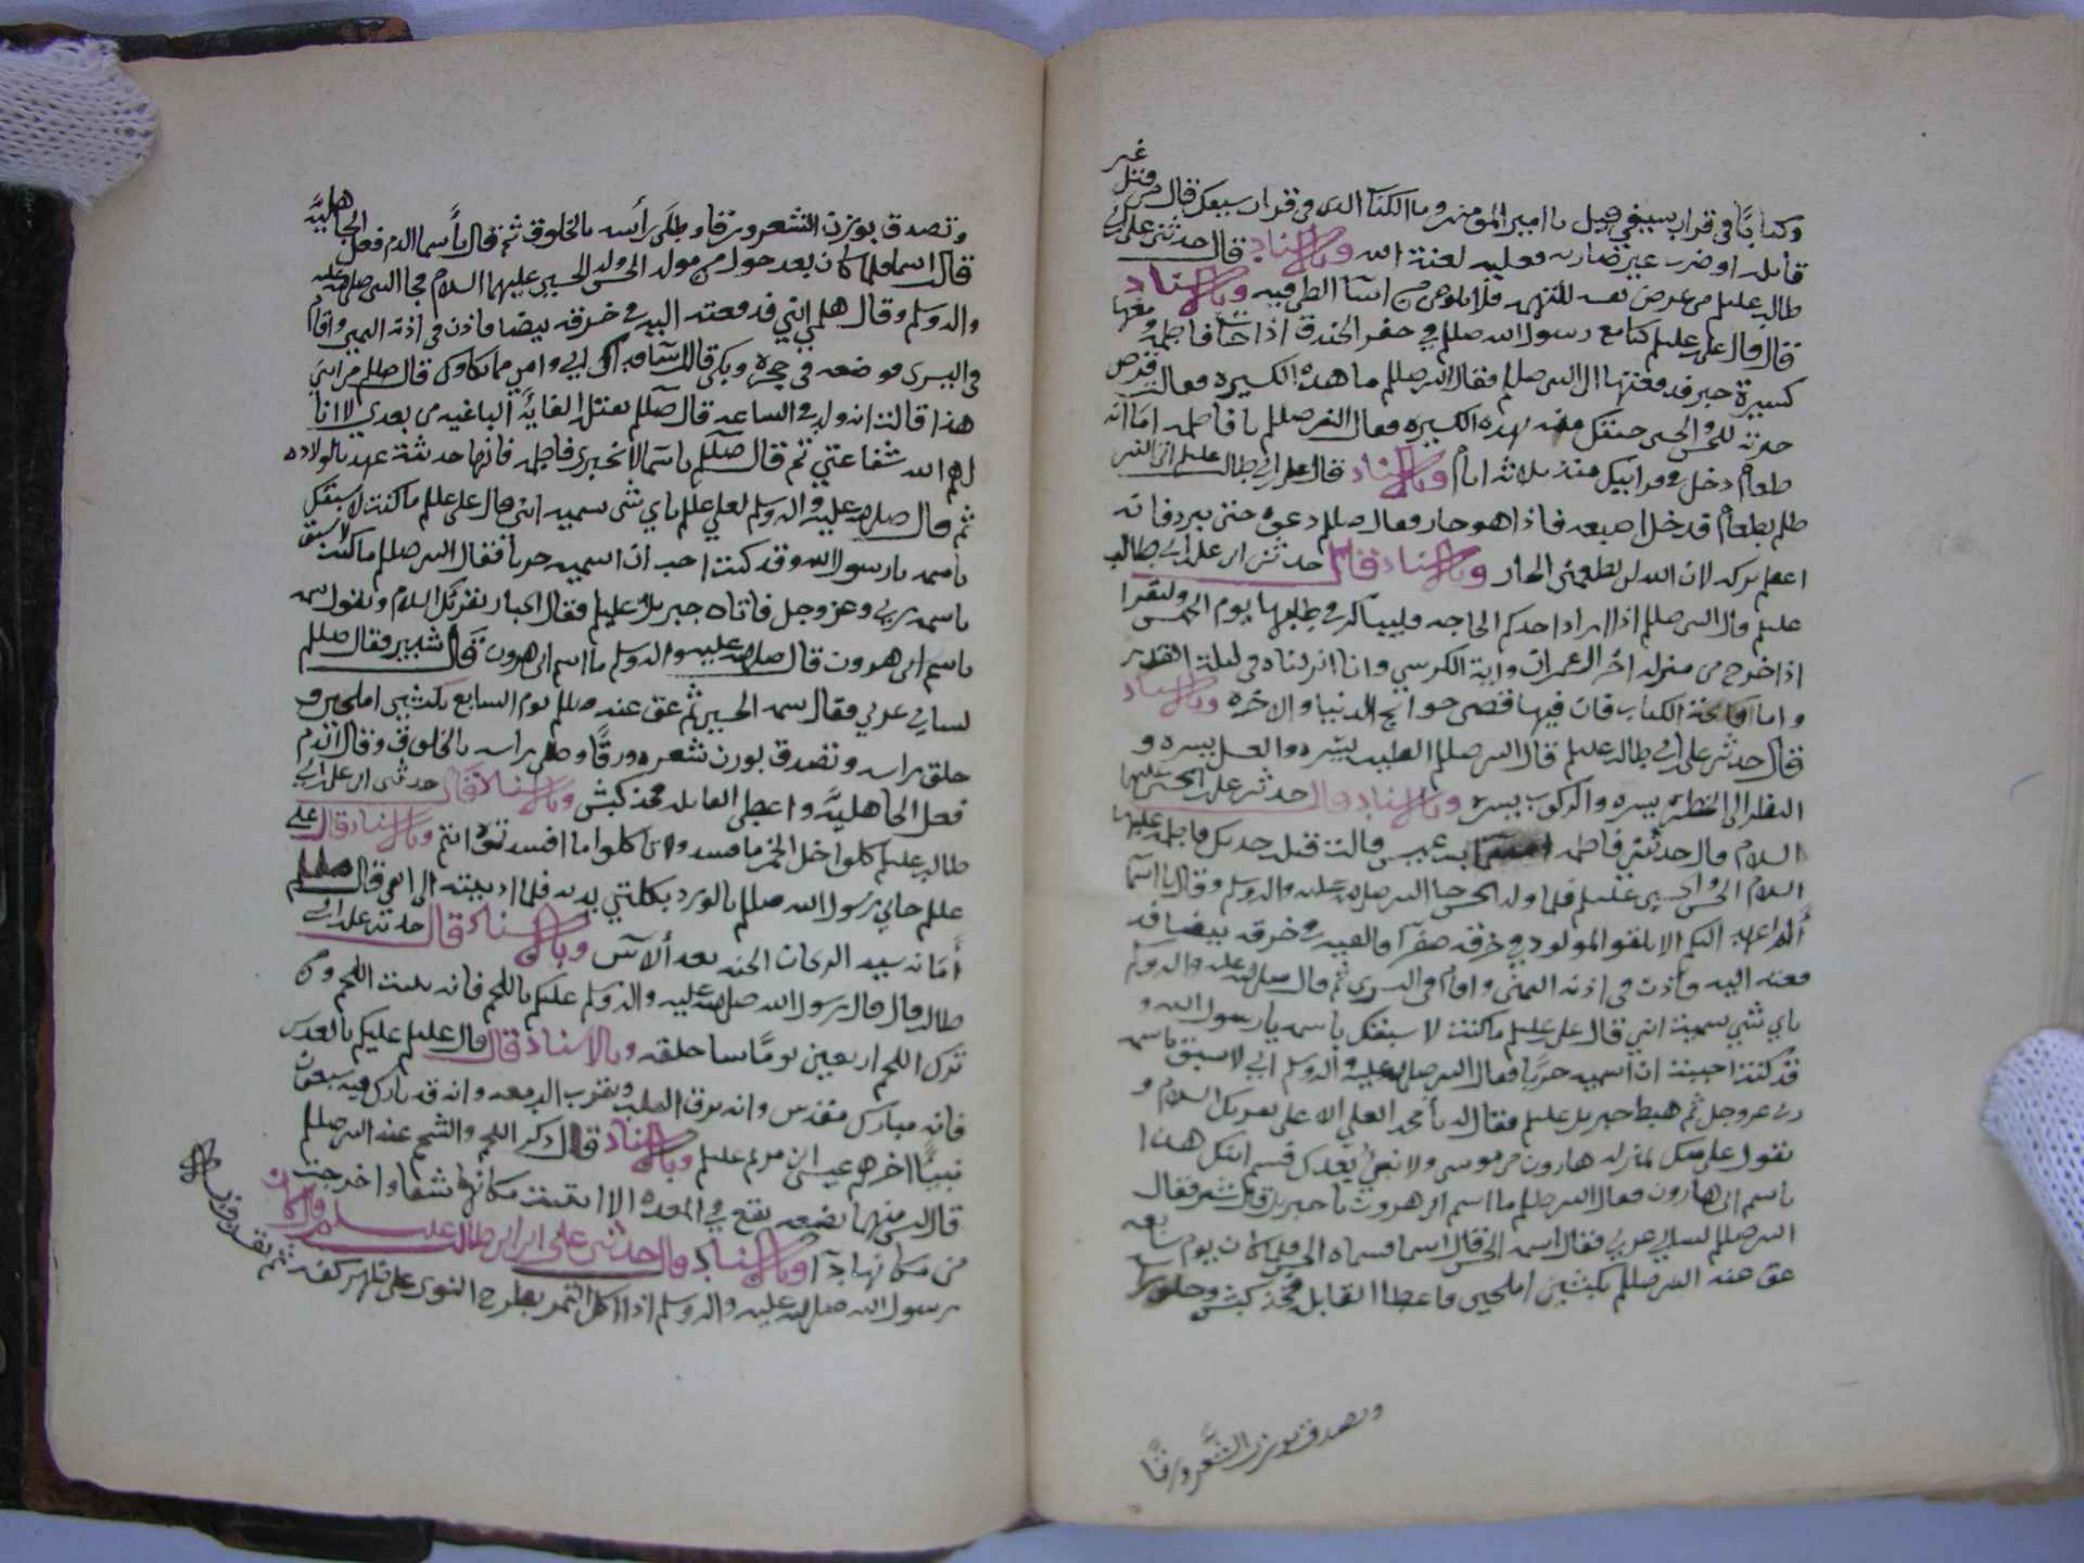 وكتابا في قراب سيفي قيل يا امير المومنين وما الكتاب الذي في قراب سيفك قال من قتل غير
قاتله او ضرب غير ضاربه فعليه لعنة الله وبالاسناد قال حدثني علي بن ابي
طالب عليلم من عرض نفسه للتهمه فلا يلومن من اسآ الظن فيه وبالاسناد
قال قال علي عليلم كنا مع رسول الله صللم في حفر الخندق اذا جات فاطمه ومعها
كسيرة خبز فدفعتها الى النبي صللم فقال النبي صللم ما هذه الكسيره فقالت قرص
خبزته للحسن والحسين جئتك منه بهذه الكسيره فقال النبي صللم يا فاطمه اما انه
طعام دخل في فم ابيك منذ ثلاثه ايام وبالاسناد قال علي بن ابي طالب عليلم اتي النبي
صللم بطعام فدخل اصبعه فاذا هو حار فقال صللم دعوه حتى يبرد فانه
اعظم بركه لان الله لم يطعمني الحار وبالاسناد قال حدثني ابي علي بن ابي طالب
عليلم قال النبي صللم اذا اراد احدكم الحاجه فليباكر في طلبها يوم الخميس وليقرا
اذا خرج من منزله اخر ال عمران واية الكرسي وانا انزلناه في ليلة القدر
وام الكتاب فان فيها قضى حوائج الدنيا والاخره وبالاسناد
قال حدثني علي بن ابي طالب عليلم قال النبي صللم الطيب يسره والعسل يسره و
النظر الى الخضره يسره والركوب يسره وبالاسناد قال حدثني علي بن الحسين عليهما
السلام قال حدثتني فاطمه اسما بنت عميس قالت قبلت جدتك فاطمه عليها
السلام الحسن والحسين عليلم فلما ولد الحسن جا النبي صلى الله عليه واله وسلم وقال يا اسما
ألم اعهد اليكم الا يلقوا المولود في خرقه صفرآ فالقيه في خرقه بيضا فد
فعته اليه فاذن في اذنه اليمنى واقام في اليسرى ثم قال صلى الله عليه واله وسلم
باي شي سميت ابني قال علي عليلم ما كنت لاسبقك باسمه يا رسول الله و
قد كنت احببت ان اسميه حربا فقال النبي صلى الله عليه واله وسلم اني لا اسبق باسمه
ربي عز وجل ثم هبط جبريل عليلم فقال له يا محمد العلي الاعلى يقريك السلام و
يقول علي منك بمنزله هارون من موسى ولا نبي بعدك فسم ابنك هذا
باسم ابن هارون فقال النبي صللم ما اسم ابن هرون يا جبريل قال شبر فقال
النبي صللم لساني عربي فقال اسمه الحسن قال اسما فسماه الحسن فلما كان يوم سابعه
عق عنه النبي صللم بكبشين املحين فاعطا القابله فخذ كبش وحلق راسه
وتصدق بوزن الشعر ورقا
وتصدق بوزن الشعر ورقا وطلى رأسه بالخلوق ثم قال يأسما الدم فعل الجاهليه
قالت اسما فلما كان بعد حول من مولد الحسن ولد الحسين عليهما السلام فجا النبي صلى الله عليه
واله وسلم وقال هلمي ابني فدفعته اليه في خرقه بيضا فاذن في اذنه اليمين واقام
في اليسرى فوضعه في حجره وبكى قالت اسما فداك ابي وامي مما بكاوك قال صللم من ابني
هذا قالت انه ولد في الساعه قال صللم تقتله الفايه الباغيه من بعدي لا انا
لهم الله شفاعتي ثم قال صللم يا سما لا تخبري فاطمه فانها حديثة عهد بالولاده
ثم قال صلى الله عليه واله وسلم لعلي عليلم باي شي سميت ابني قال علي عليلم ما كنت لاسبقك
باسمه يا رسول الله وقد كنت احب ان اسميه حربا فقال النبي صللم ما كنت لاسبق
باسمه ربي وعز وجل فاتاه جبريل عليلم فقال الجبار يقريك السلام ويقول سمه
باسم ابن هرون قال صلى الله عليه واله وسلم ما اسم ابن هرون قال شبير فقال صللم
لساني عربي فقال سمه الحسين ثم عق عنه صللم يوم السابع بكبشين املحين و
حلق راسه وتصدق بوزن شعره ورقا وطلى راسه بالخلوق وقال الدم
فعل الجاهليه واعطى القابله فخذ كبش وبالاسناد قال حدثني ابي علي بن ابي
طالب عليلم كلوا خل الخمر ما فسد ولا تاكلوا ما افسدتموه انتم وبالاسناد قال علي
عليلم حباني رسول الله صللم بالورد بكلتي يديه فلما ادنيته الى انفي قال صللم
أما انه سيد الريحان الجنه بعد ألآس وبالاسناد قال حدثني علي بن ابي
طالب قال قال رسول الله صلى الله عليه واله وسلم عليكم باللحم فانه ينبت اللحم ومن
ترك اللحم اربعين يوما سا خلقه وبالاسناد قال قال عليلم عليكم بالعدس
فانه مبارك مقدس وانه يرق القلب ويغزب الدمعه وانه قد بارك فيه سبعون
نبيا اخرهم عيسى ابن مريم عليلم وبالاسناد قال ذكر اللحم والشحم عند النبي صللم
قال ليس منها بضعه تقع في المعده الا انبتت مكانها شفا واخرجت
من مكانها دآ وبالاسناد قال حدثني علي ابن ابي طالب عليه سلم قال كان
رسول الله صلى الله عليه واله وسلم اذا اكل التمر يطرح النوى على ظهر كفه ثم يقذف به